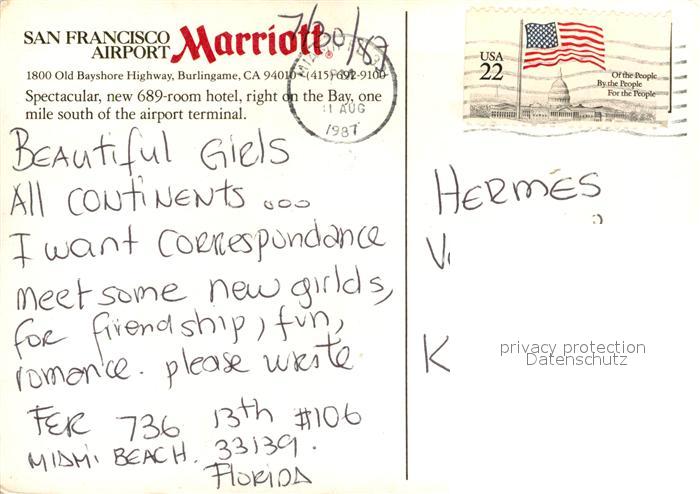 7/30/87
SAN FRANCISCO
AIRPORT Marriott®
1800 Old Bayshore Highway, Burlingame, CA 94010 (415) 692-9100
Spectacular, new 689-room hotel, right on the Bay, one
mile south of the airport terminal.
PM
1 AUG
1987
USA
22
Of the People
By the People
For the People
BEAUTIFUL GIRLS
All CONTINENTS ...
I want CORRESPONDANCE
meet some new girlds,
for firendship, fun,
romance. please write
FER 736 13th #106
MIAMI BEACH. 33139.
FLORIDA
HERMES
V.
K
privacy protection
Datenschutz